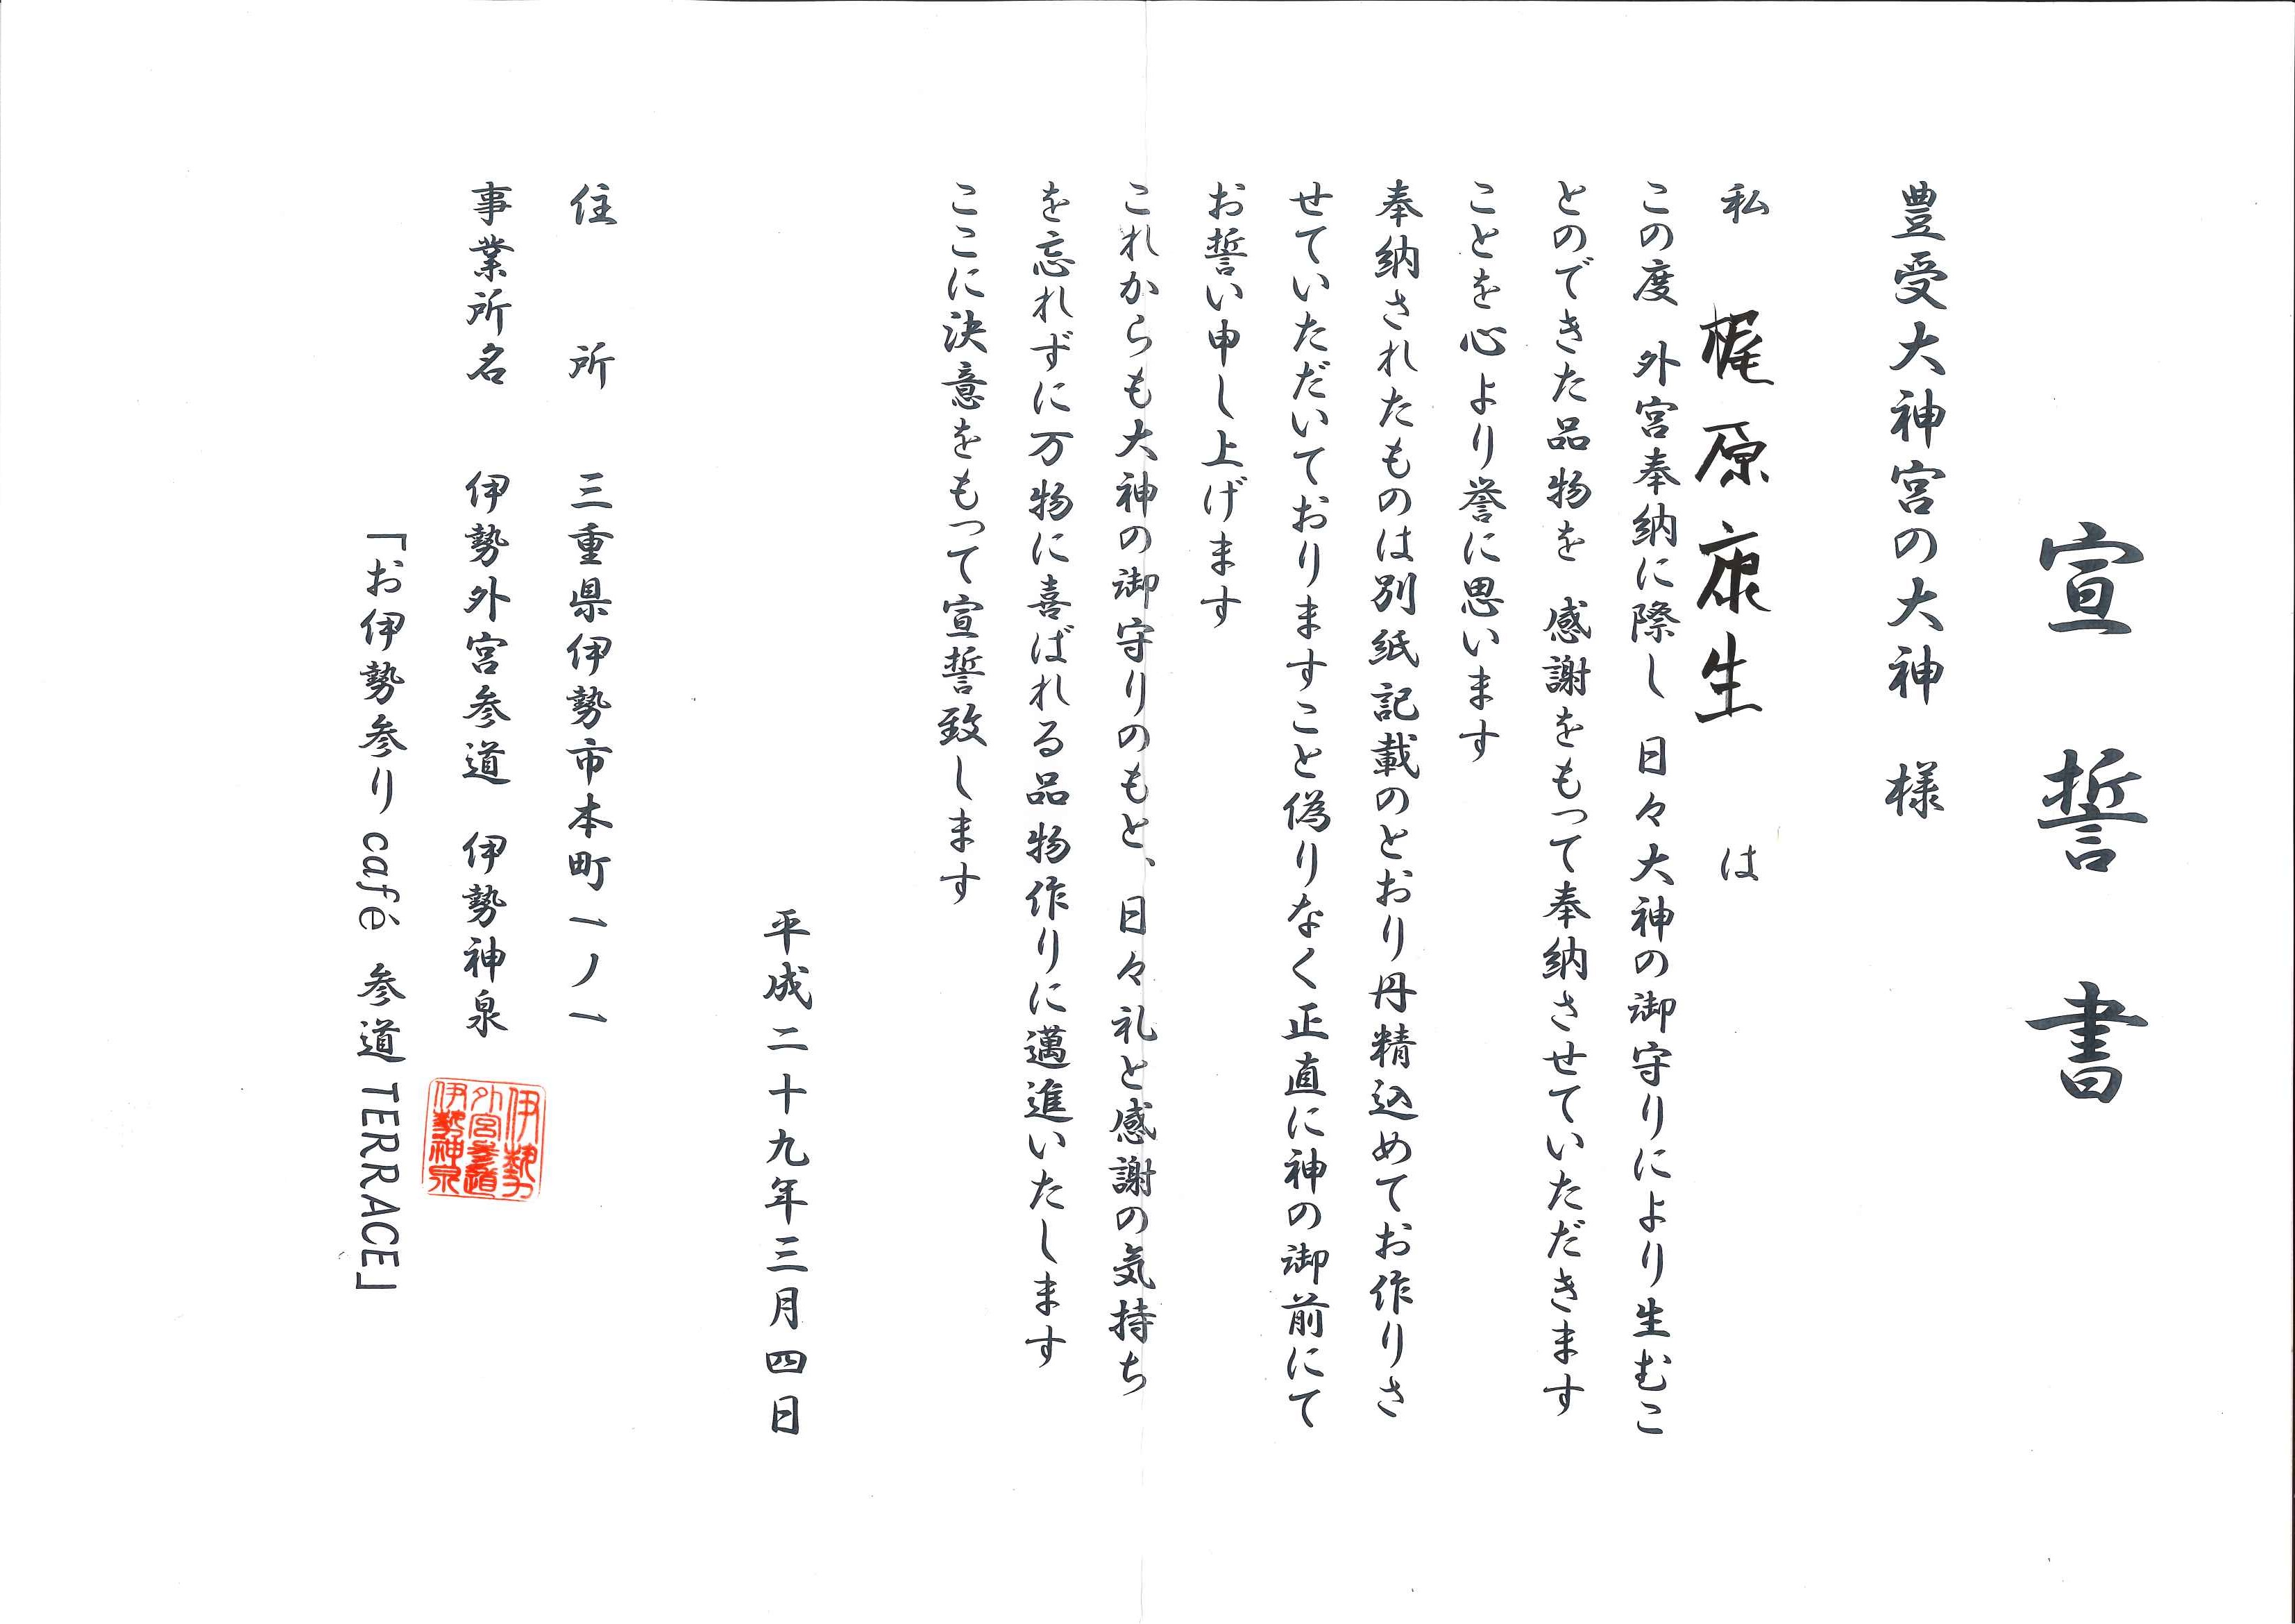 宣誓書
豊受大神宮の大神 様
私 梶原康生 は
この度 外宮奉納に際し 日々大神の御守りにより生むこ
とのできた品物を 感謝をもって奉納させていただきます
ことを心より誉に思います
奉納されたものは別紙記載のとおり丹精込めてお作りさ
せていただいておりますこと偽りなく正直に神の御前にて
お誓い申し上げます
これからも大神の御守りのもと、日々礼と感謝の気持ち
を忘れずに万物に喜ばれる品物作りに邁進いたします
ここに決意をもって宣誓致します
平成二十九年三月四日
住所 三重県伊勢市本町一ノ一
事業所名 伊勢外宮参道 伊勢神泉
「お伊勢参り café 参道 TERRACE」
伊勢
外宮参道
伊勢神泉